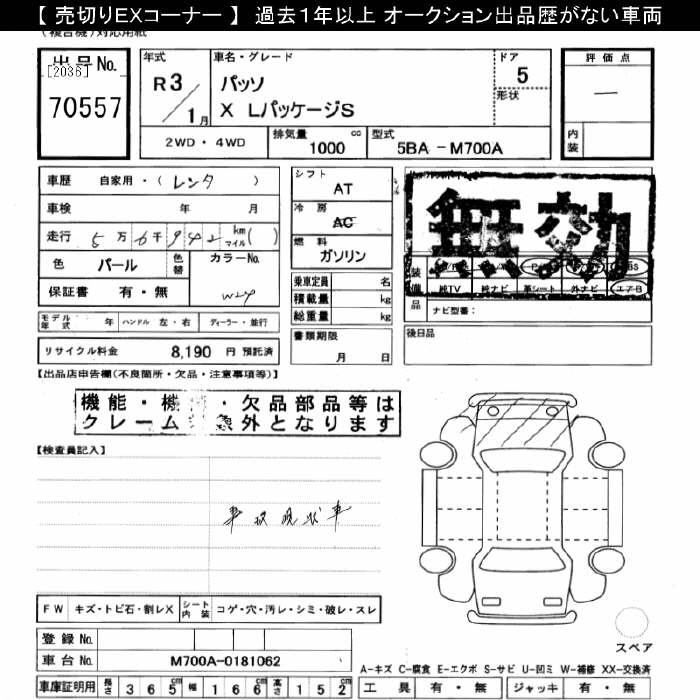 【 売切りEXコーナー 】 過去１年以上 オークション出品歴がない車両
(複合機)対応用紙
出品No.
[2036]
70557
年式
R 3 / 1 月
車名・グレード
パッソ
X LパッケージS
ドア
5
形状
評価点
―
内装
2WD・4WD
排気量 1000 cc
型式 5BA -M700A
車歴 自家用・( レンタ )
車検 年 月
走行 5万6千942 km マイル( )
色 パール 色替 カラーNo. W24
保証書 有・無
モデル年式 年 ハンドル 左・右 ディーラー・並行
リサイクル料金 8,190 円 預託済
シフト
AT
冷房
AC
燃料
ガソリン
乗車定員 名
積載量 kg
総重量 kg
書類期限
月 日
無効
装備品
純TV 純ナビ 革シート 外ナビ エアB
ナビ型番：
後日品
【出品店申告欄(不良箇所・欠品・注意事項等)】
機能・機 ・欠品部品等は
クレーム 象外となります
【検査員記入】
事故現状車
FW キズ・トビ石・割レX シート内装 コゲ・穴・汚レ・シミ・破レ・スレ
登録No.
車台No. M700A-0181062
車庫証明用 長さ 365cm 幅 166cm 高さ 152cm
スペア
A-キズ C-腐食 E-エクボ S-サビ U-凹ミ W-補修 XX-交換済
工具 有・無 ジャッキ 有・無